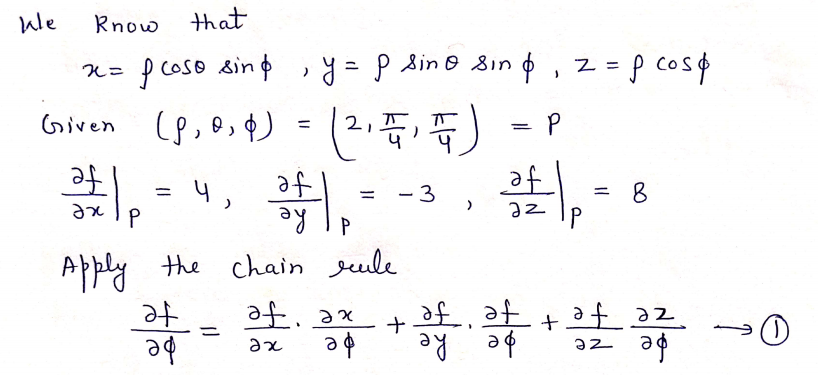 We know that
x = ρ cosθ sinϕ , y = ρ sinθ sinϕ , z = ρ cosϕ
Given (ρ, θ, ϕ) = (2, π/4, π/4) = P
∂f/∂x|P = 4 , ∂f/∂y|P = -3 , ∂f/∂z|P = 8
Apply the chain rule
∂f/∂ϕ = ∂f/∂x · ∂x/∂ϕ + ∂f/∂y · ∂f/∂ϕ + ∂f/∂z ∂z/∂ϕ → ①